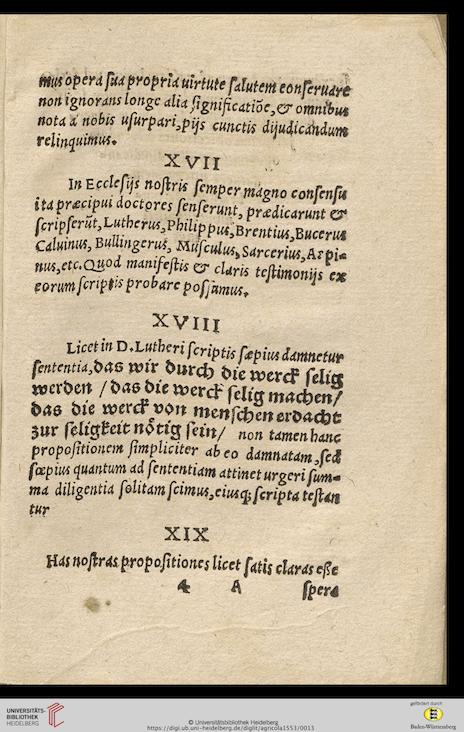 mus opera sua propria uirtute salutem conseruare
non ignorans longe alia significatiõe, & omnibus
nota a nobis usurpari, pijs cunctis dijudicandum
relinquimus.
XVII
In Ecclesijs nostris semper magno consensu
ita præcipui doctores senserunt, prædicarunt &
scripserũt, Lutherus, Philippus, Brentius, Bucerus
Caluinus, Bullingerus, Musculus, Sarcerius, Aepi-
nus, etc. Quod manifestis & claris testimonijs ex
eorum scriptis probare possumus.
XVIII
Licet in D. Lutheri scriptis sæpius damnetur
sententia, das wir durch die werck selig
werden / das die werck selig machen /
das die werck von menschen erdacht
zur seligkeit nötig sein / non tamen hanc
propositionem simpliciter ab eo damnatam, sed
sæpius quantum ad sententiam attinet urgeri sum-
ma diligentia solitam scimus, eiusq; scripta testan
tur
XIX
Has nostras propositiones licet satis claras esse
4 A spera
UNIVERSITÄTS-
BIBLIOTHEK
HEIDELBERG
© Universitätsbibliothek Heidelberg
https://digi.ub.uni-heidelberg.de/diglit/agricola1553/0013
gefördert durch
Baden-Württemberg